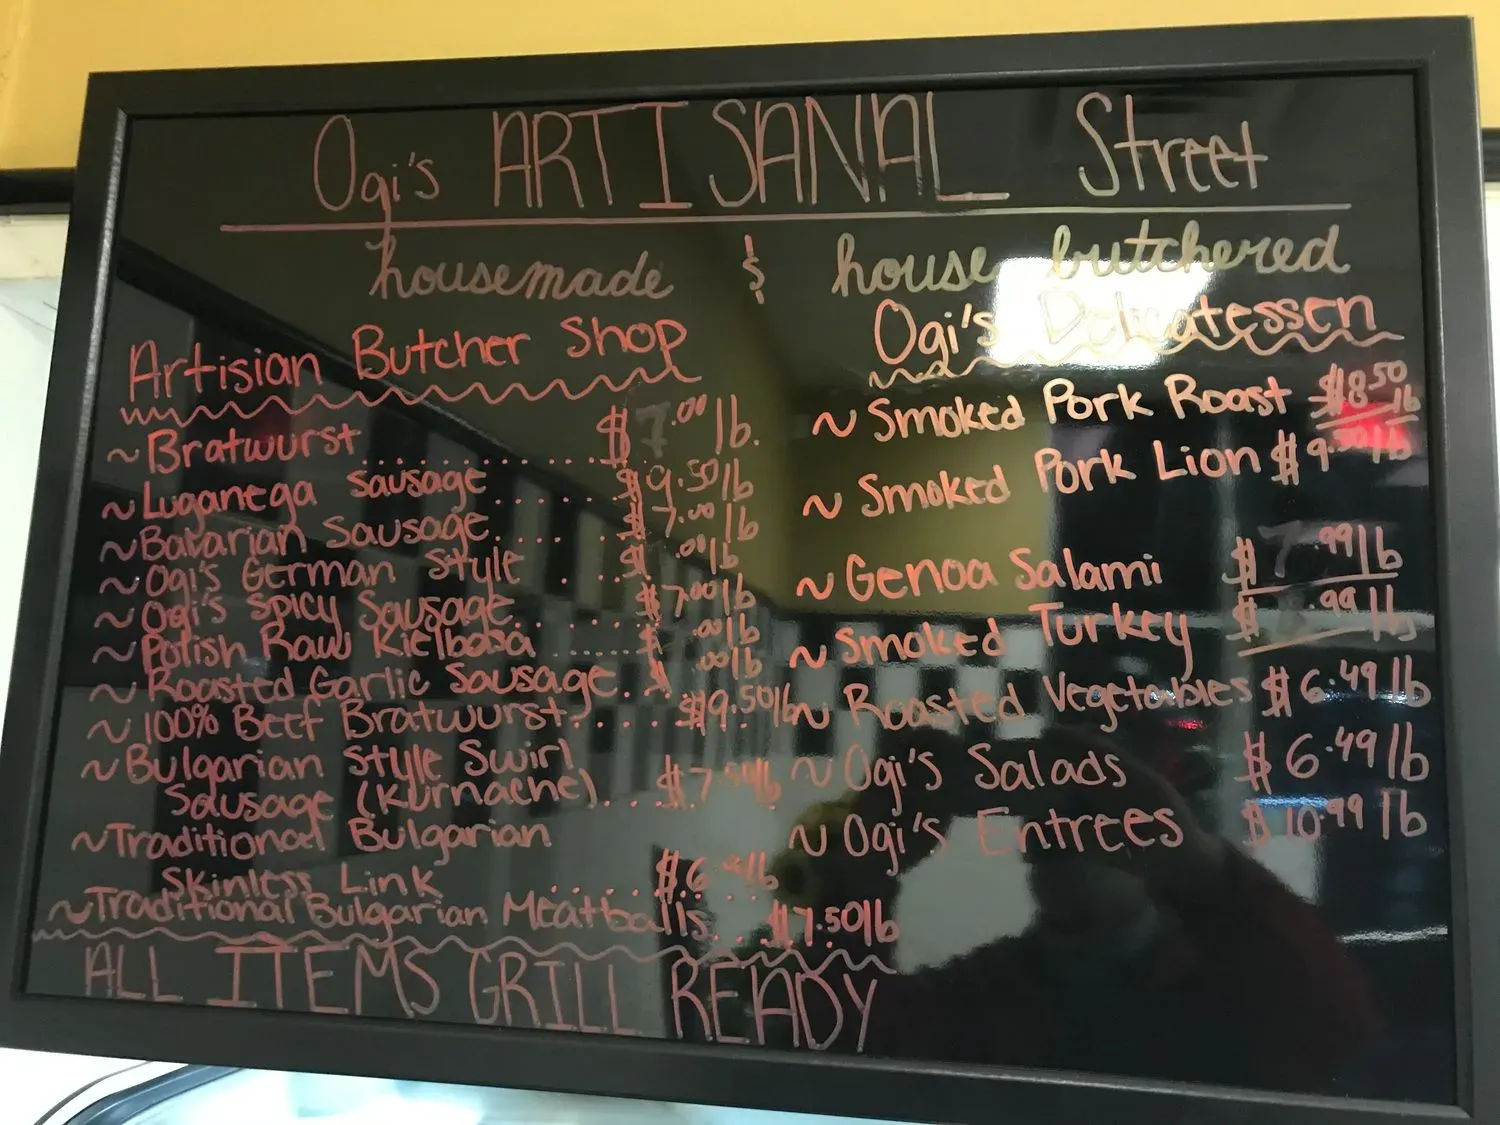 Ogi's ARTISANAL Street
housemade & house butchered
Artisian Butcher Shop
~Bratwurst............. $7.00 lb.
~Luganega Sausage...... $9.50 lb
~Bavarian Sausage...... $7.00 lb
~Ogi's German Style .... $ .00 lb
~Ogi's Spicy Sausage....... $7.00 lb
~Polish Raw Kielbasa ....... $ .00 lb
~Roasted Garlic Sausage. $ .00 lb
~100% Beef Bratwurst.... $9.50 lb
~Bulgarian Style Swirl
Sausage (Kurnache)... $7. lb
~Traditional Bulgarian
Skinless Link ....... $6. lb
~Traditional Bulgarian Meatballs... $7.50 lb
ALL ITEMS GRILL READY
Ogi's Delicatessen
~ Smoked Pork Roast $8.50 lb
~ Smoked Pork Lion $9. lb
~ Genoa Salami $7.99 lb
~ Smoked Turkey $ .99 lb
~ Roasted Vegetables $6.49 lb
~ Ogi's Salads $6.49 lb
~ Ogi's Entrees $10.99 lb